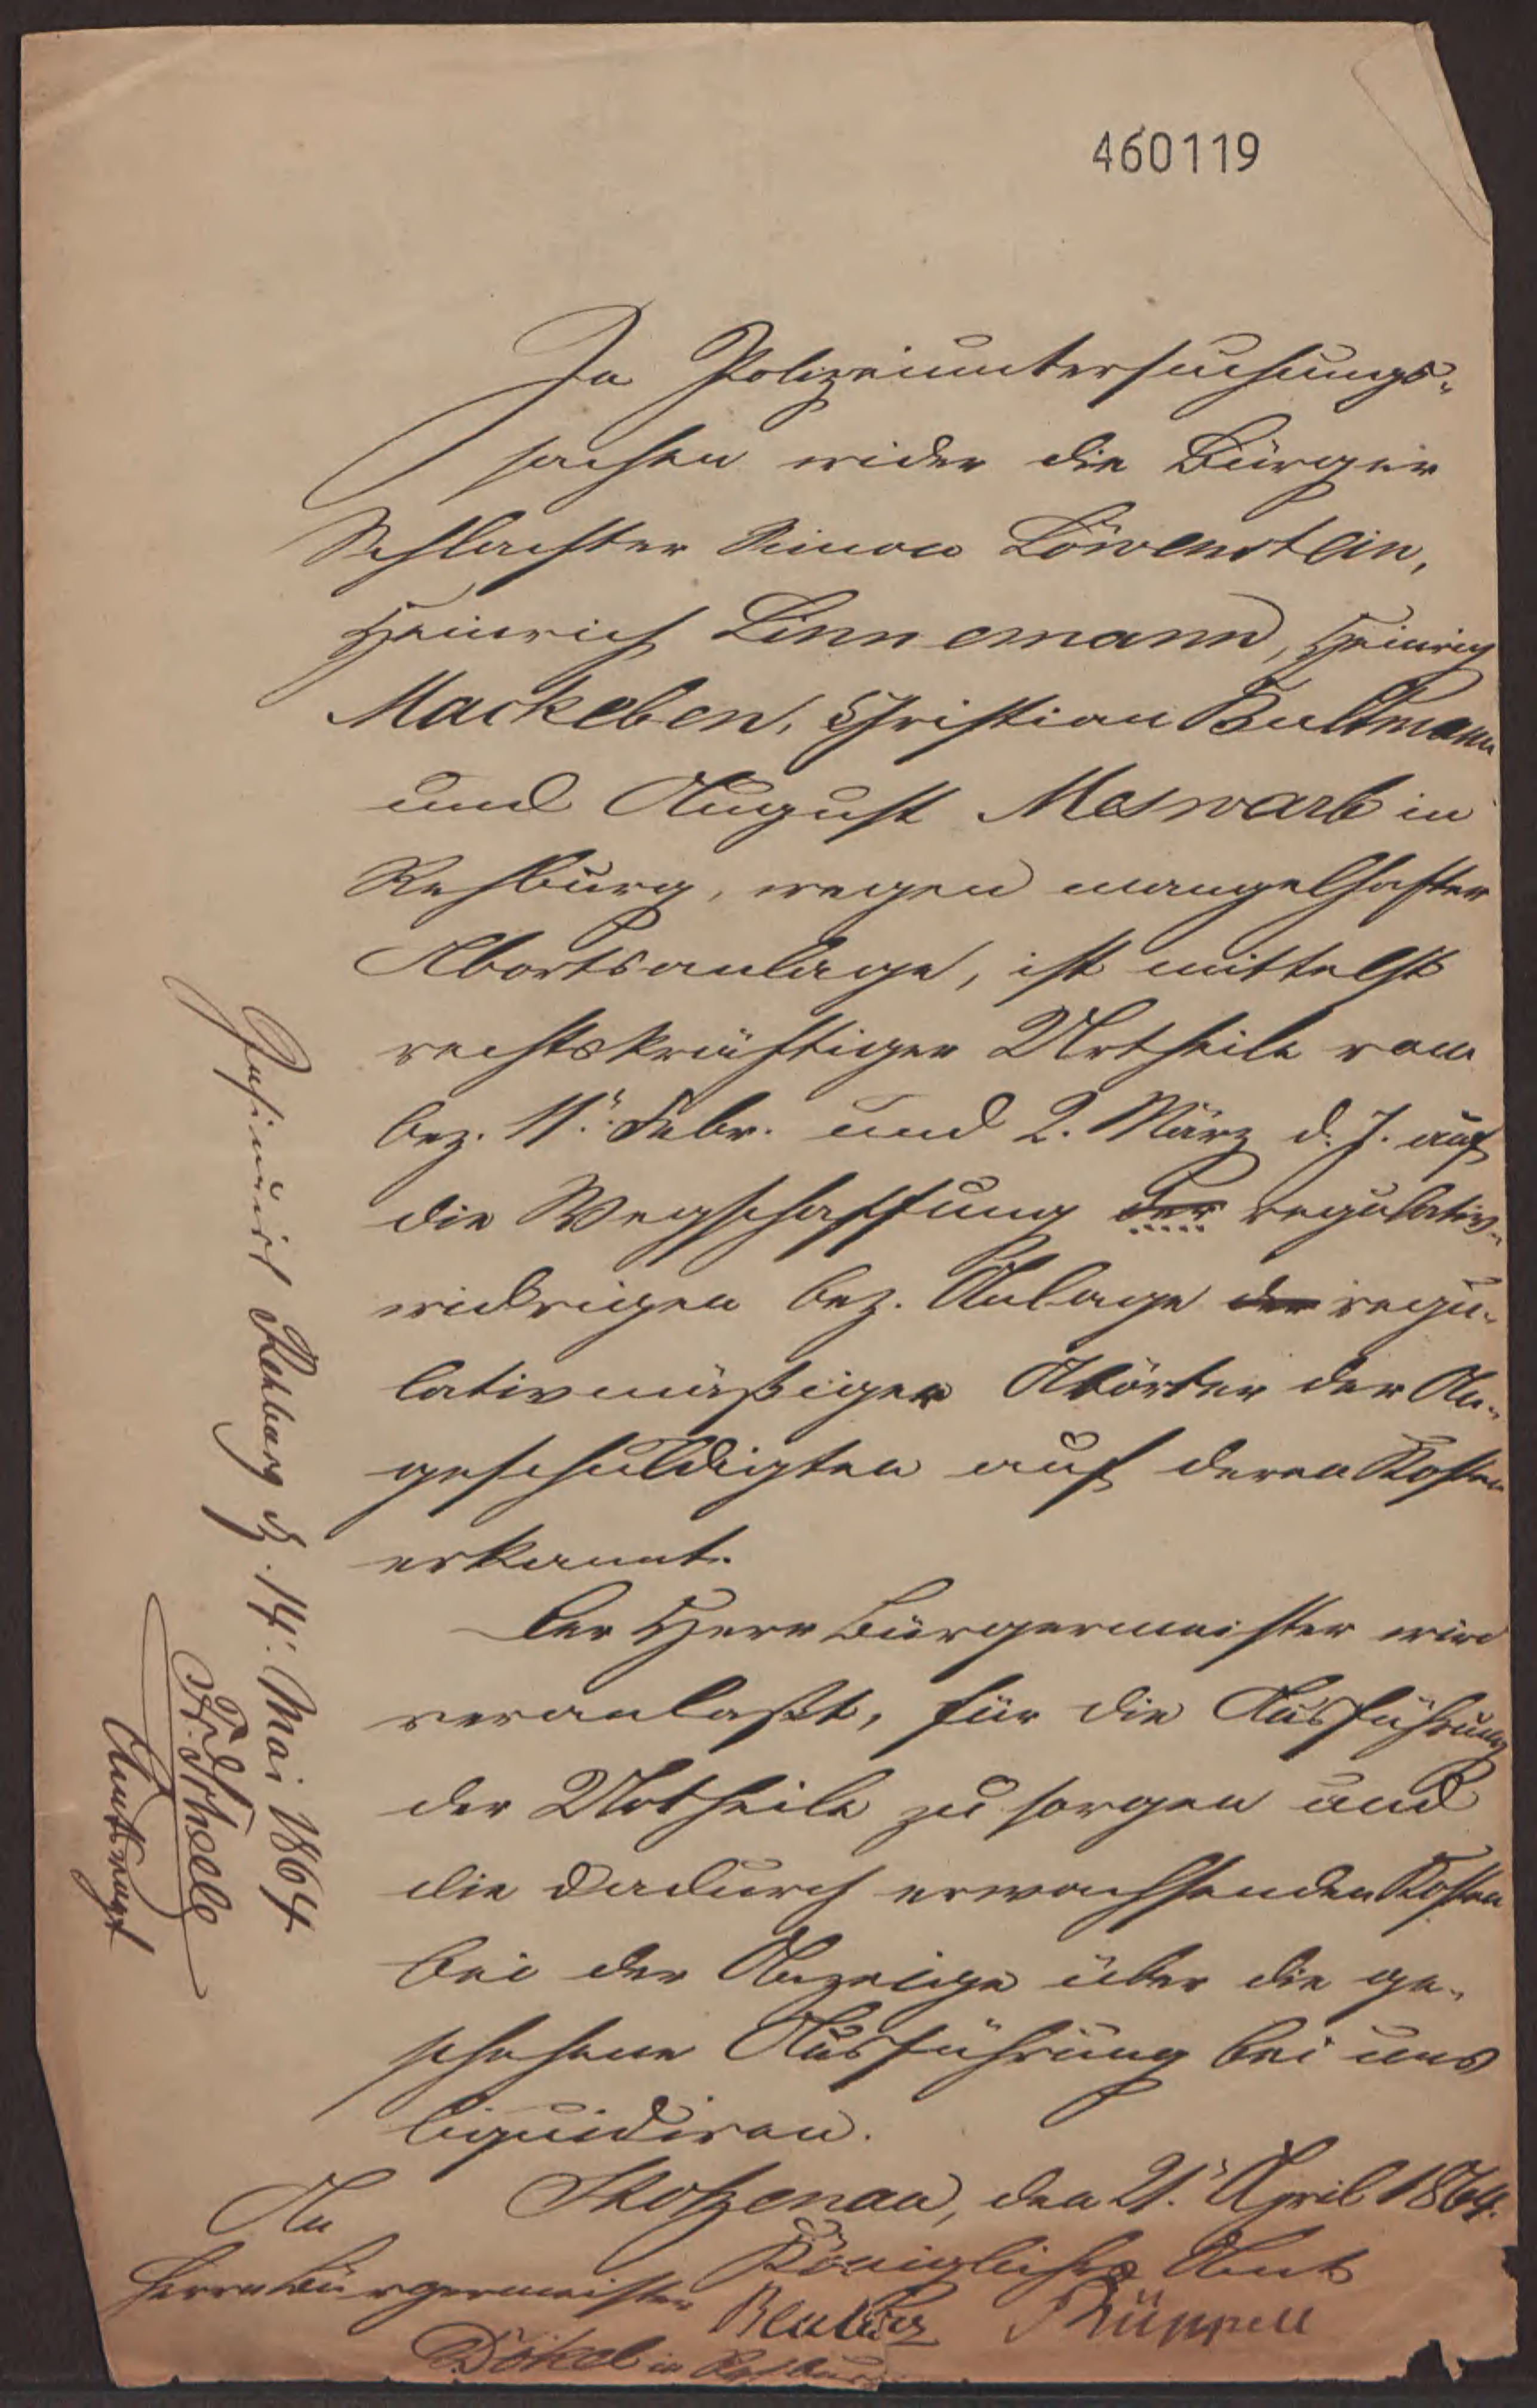 460119
In Polizeiuntersuchungs-
sachen wider die Bürger
Schlachter Simon Löwenstein,
Heinrich Linnemann, Heinrich
Mackeben, Christian Bultmann
und August Meswarb in
Rehburg, wegen mangelhafter
Abortsanlage, ist mittelst
rechtskräftiger Urtheile vom
bez. 11. Febr. und 2. März d. J. auf
die Wegschaffung der regulativ-
widrigen bez. Anlage der regu-
lativmäßigen Abörter der An-
geschuldigten auf deren Kosten
erkannt.
Der Herr Bürgermeister wird
veranlaßt, für die Ausführung
der Urtheile zu sorgen und
die dadurch erwachsenden Kosten
bei der Anzeige über die ge-
schehene Ausführung bei uns
liquidiren.
Stolzenau, den 21. April 1864.
Königliches Amt
Rüppell
An
Herrn Bürgermeister
Dökel in Rehburg
Insinuirt Rehburg d. 14. Mai 1864
Fr. Thiele
Amtsvogt